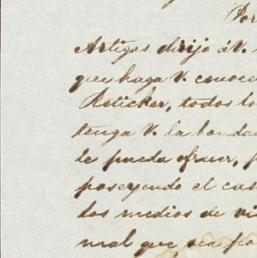 Por
Artigas dirijo á V.
que haga V. conocer
Reticker, todos lo
tenga V. la bondad
le pueda ofrecer, p
poseyendo el cas
los medios de vi
mal que sea po